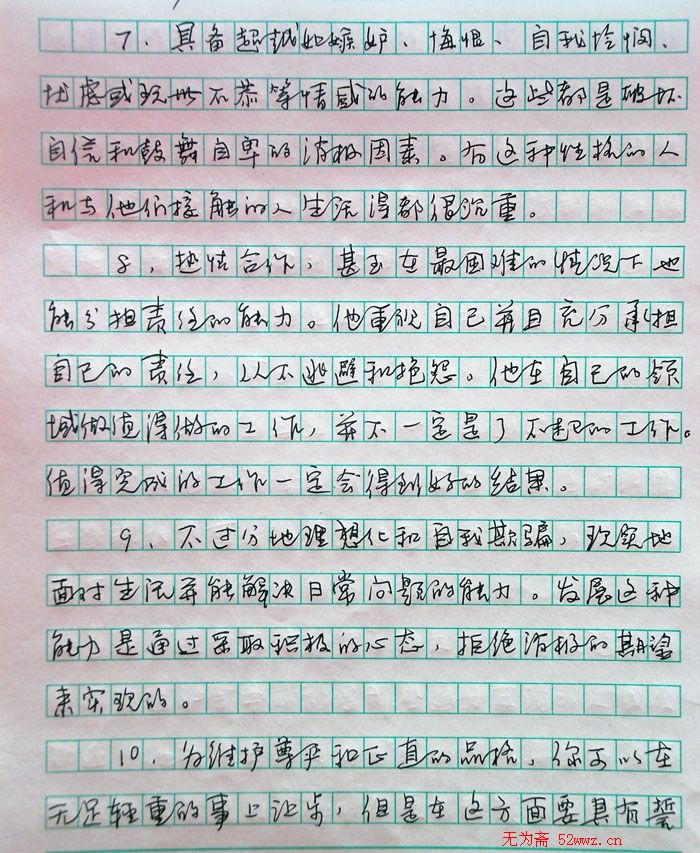 7、具备超越如嫉妒、悔恨、自我怜悯、
忧虑或玩世不恭等情感的能力。这些都是破坏
自信和鼓舞自卑的消极因素。有这种性格的人
和与他们接触的人生活得都很沉重。
8、热情合作，甚至在最困难的情况下也
能分担责任的能力。他重视自己并且充分承担
自己的责任，从不逃避和抱怨。他在自己的领
域做值得做的工作，并不一定是了不起的工作。
值得完成的工作一定会得到好的结果。
9、不过分地理想化和自我欺骗，现实地
面对生活并能解决日常问题的能力。发展这种
能力是通过采取积极的心态，拒绝消极的期望
来实现的。
10、为维护尊严和正直的品格，你可以在
无足轻重的事上让步，但是在这方面要具有誓
无为斋 52wwz.cn